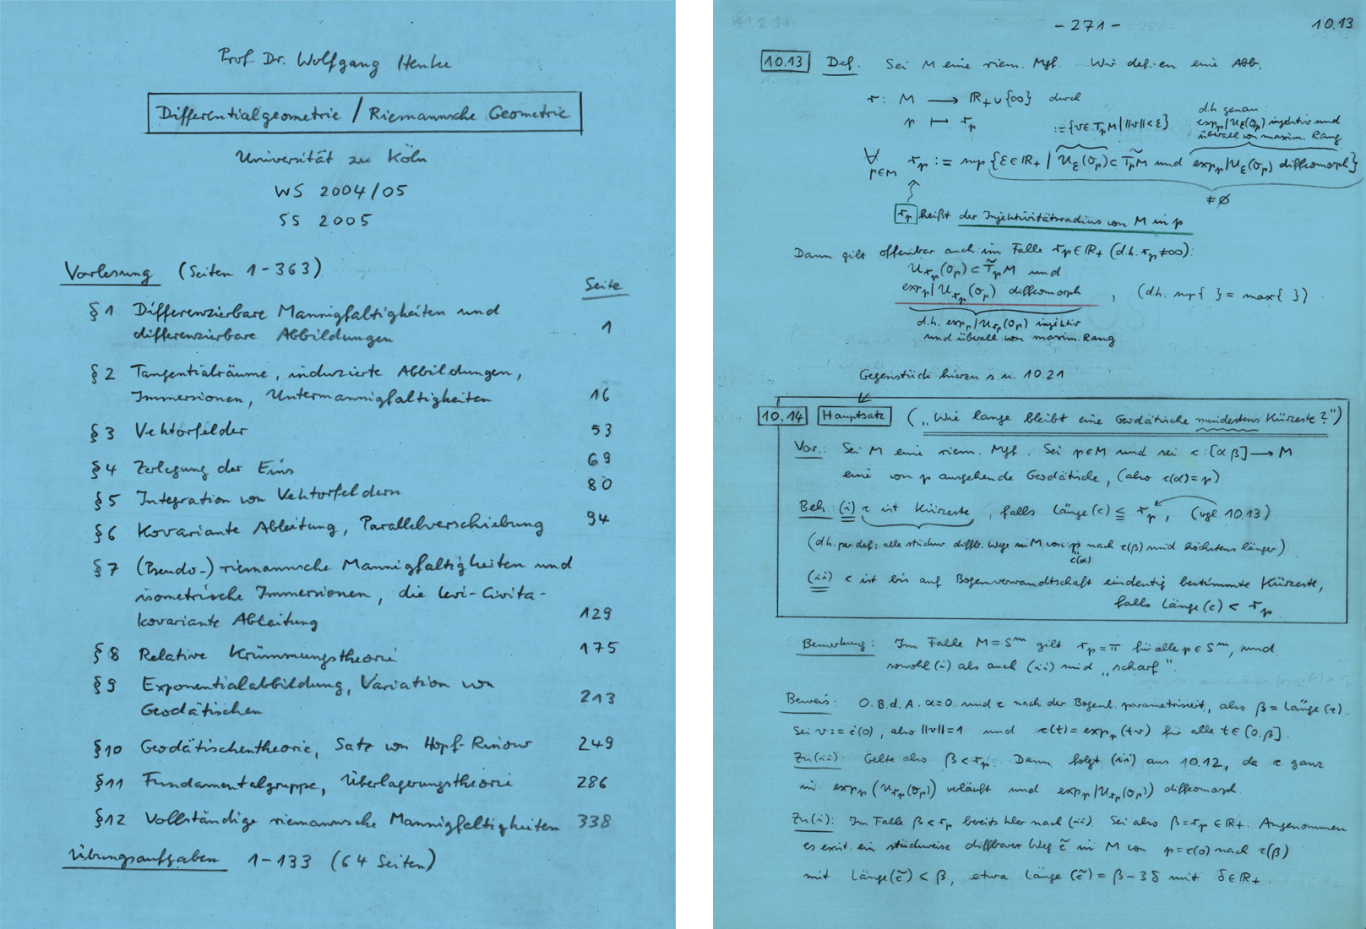 Prof. Dr. Wolfgang Henke
Differentialgeometrie / Riemannsche Geometrie
Universität zu Köln
WS 2004/05
SS 2005
Vorlesung (Seiten 1-363)
Seite
§1 Differenzierbare Mannigfaltigkeiten und
differenzierbare Abbildungen 1
§2 Tangentialräume, induzierte Abbildungen,
Immersionen, Untermannigfaltigkeiten 16
§3 Vektorfelder 53
§4 Zerlegung der Eins 69
§5 Integration von Vektorfeldern 80
§6 Kovariante Ableitung, Parallelverschiebung 94
§7 (Pseudo-) riemannsche Mannigfaltigkeiten und
isometrische Immersionen, die Levi-Civita-
kovariante Ableitung 129
§8 Relative Krümmungstheorie 175
§9 Exponentialabbildung, Variation von
Geodätischen 213
§10 Geodätischentheorie, Satz von Hopf-Rinow 249
§11 Fundamentalgruppe, Überlagerungstheorie 286
§12 Vollständige riemannsche Mannigfaltigkeiten 338
Übungsaufgaben 1-133 (64 Seiten)
- 271 - 10.13
10.13 Def. Sei M eine riem. Mgf. Wir def.-en eine Abb.
r: M ⟶ ℝ₊ ∪ {∞} durch
d.h. genau
p ⟼ r_p := {v ∈ T_pM | ||v|| < ε} exp_p|U_ε(0_p) injektiv und
überall von maxim. Rang
∀ p∈M r_p := sup {ε ∈ ℝ₊ | U_ε(0_p) ⊂ T̃_pM und exp_p|U_ε(0_p) diffeomorph}
≠ ∅
r_p heißt der Injektivitätsradius von M in p
Dann gilt offenbar auch im Falle r_p ∈ ℝ₊ (d.h. r_p ≠ ∞):
U_{r_p}(0_p) ⊂ T̃_pM und
exp_p|U_{r_p}(0_p) diffeomorph , (d.h. sup{ } = max{ })
d.h. exp_p|U_{r_p}(0_p) injektiv
und überall von maxim. Rang
Gegenstück hierzu s. u. 10.21
10.14 Hauptsatz („Wie lange bleibt eine Geodätische mindestens Kürzeste?")
Vor.: Sei M eine riem. Mgf. Sei p∈M und sei c: [α,β] ⟶ M
eine von p ausgehende Geodätische, (also c(α)=p)
Beh.: (i) c ist Kürzeste, falls Länge(c) ≦ r_p, (vgl 10.13)
(d.h. per def.: alle stückw. diffb. Wege in M von p nach c(β) sind höchstens länger)
c(α)
(ii) c ist bis auf Bogenverwandtschaft eindeutig bestimmte Kürzeste,
falls Länge(c) < r_p
Bemerkung: Im Falle M = Sᵐ gilt r_p = π für alle p ∈ Sᵐ, und
sowohl (i) als auch (ii) sind „scharf".
Beweis: O.B.d.A. α=0 und c nach der Bogenl. parametrisiert, also β = Länge(c).
Sei v := ċ(0), also ||v||=1 und c(t) = exp_p(tv) für alle t∈[0,β].
Zu (ii): Gelte also β < r_p. Dann folgt (ii) aus 10.12, da c ganz
in exp_p(U_{r_p}(0_p)) verläuft und exp_p|U_{r_p}(0_p) diffeomorph.
Zu (i): Im Falle β < r_p bereits klar nach (ii). Sei also β = r_p ∈ ℝ₊. Angenommen
es exist. ein stückweise diffbarer Weg c̃ in M von p = c(0) nach c(β)
mit Länge(c̃) < β, etwa Länge(c̃) = β - 3δ mit δ ∈ ℝ₊.